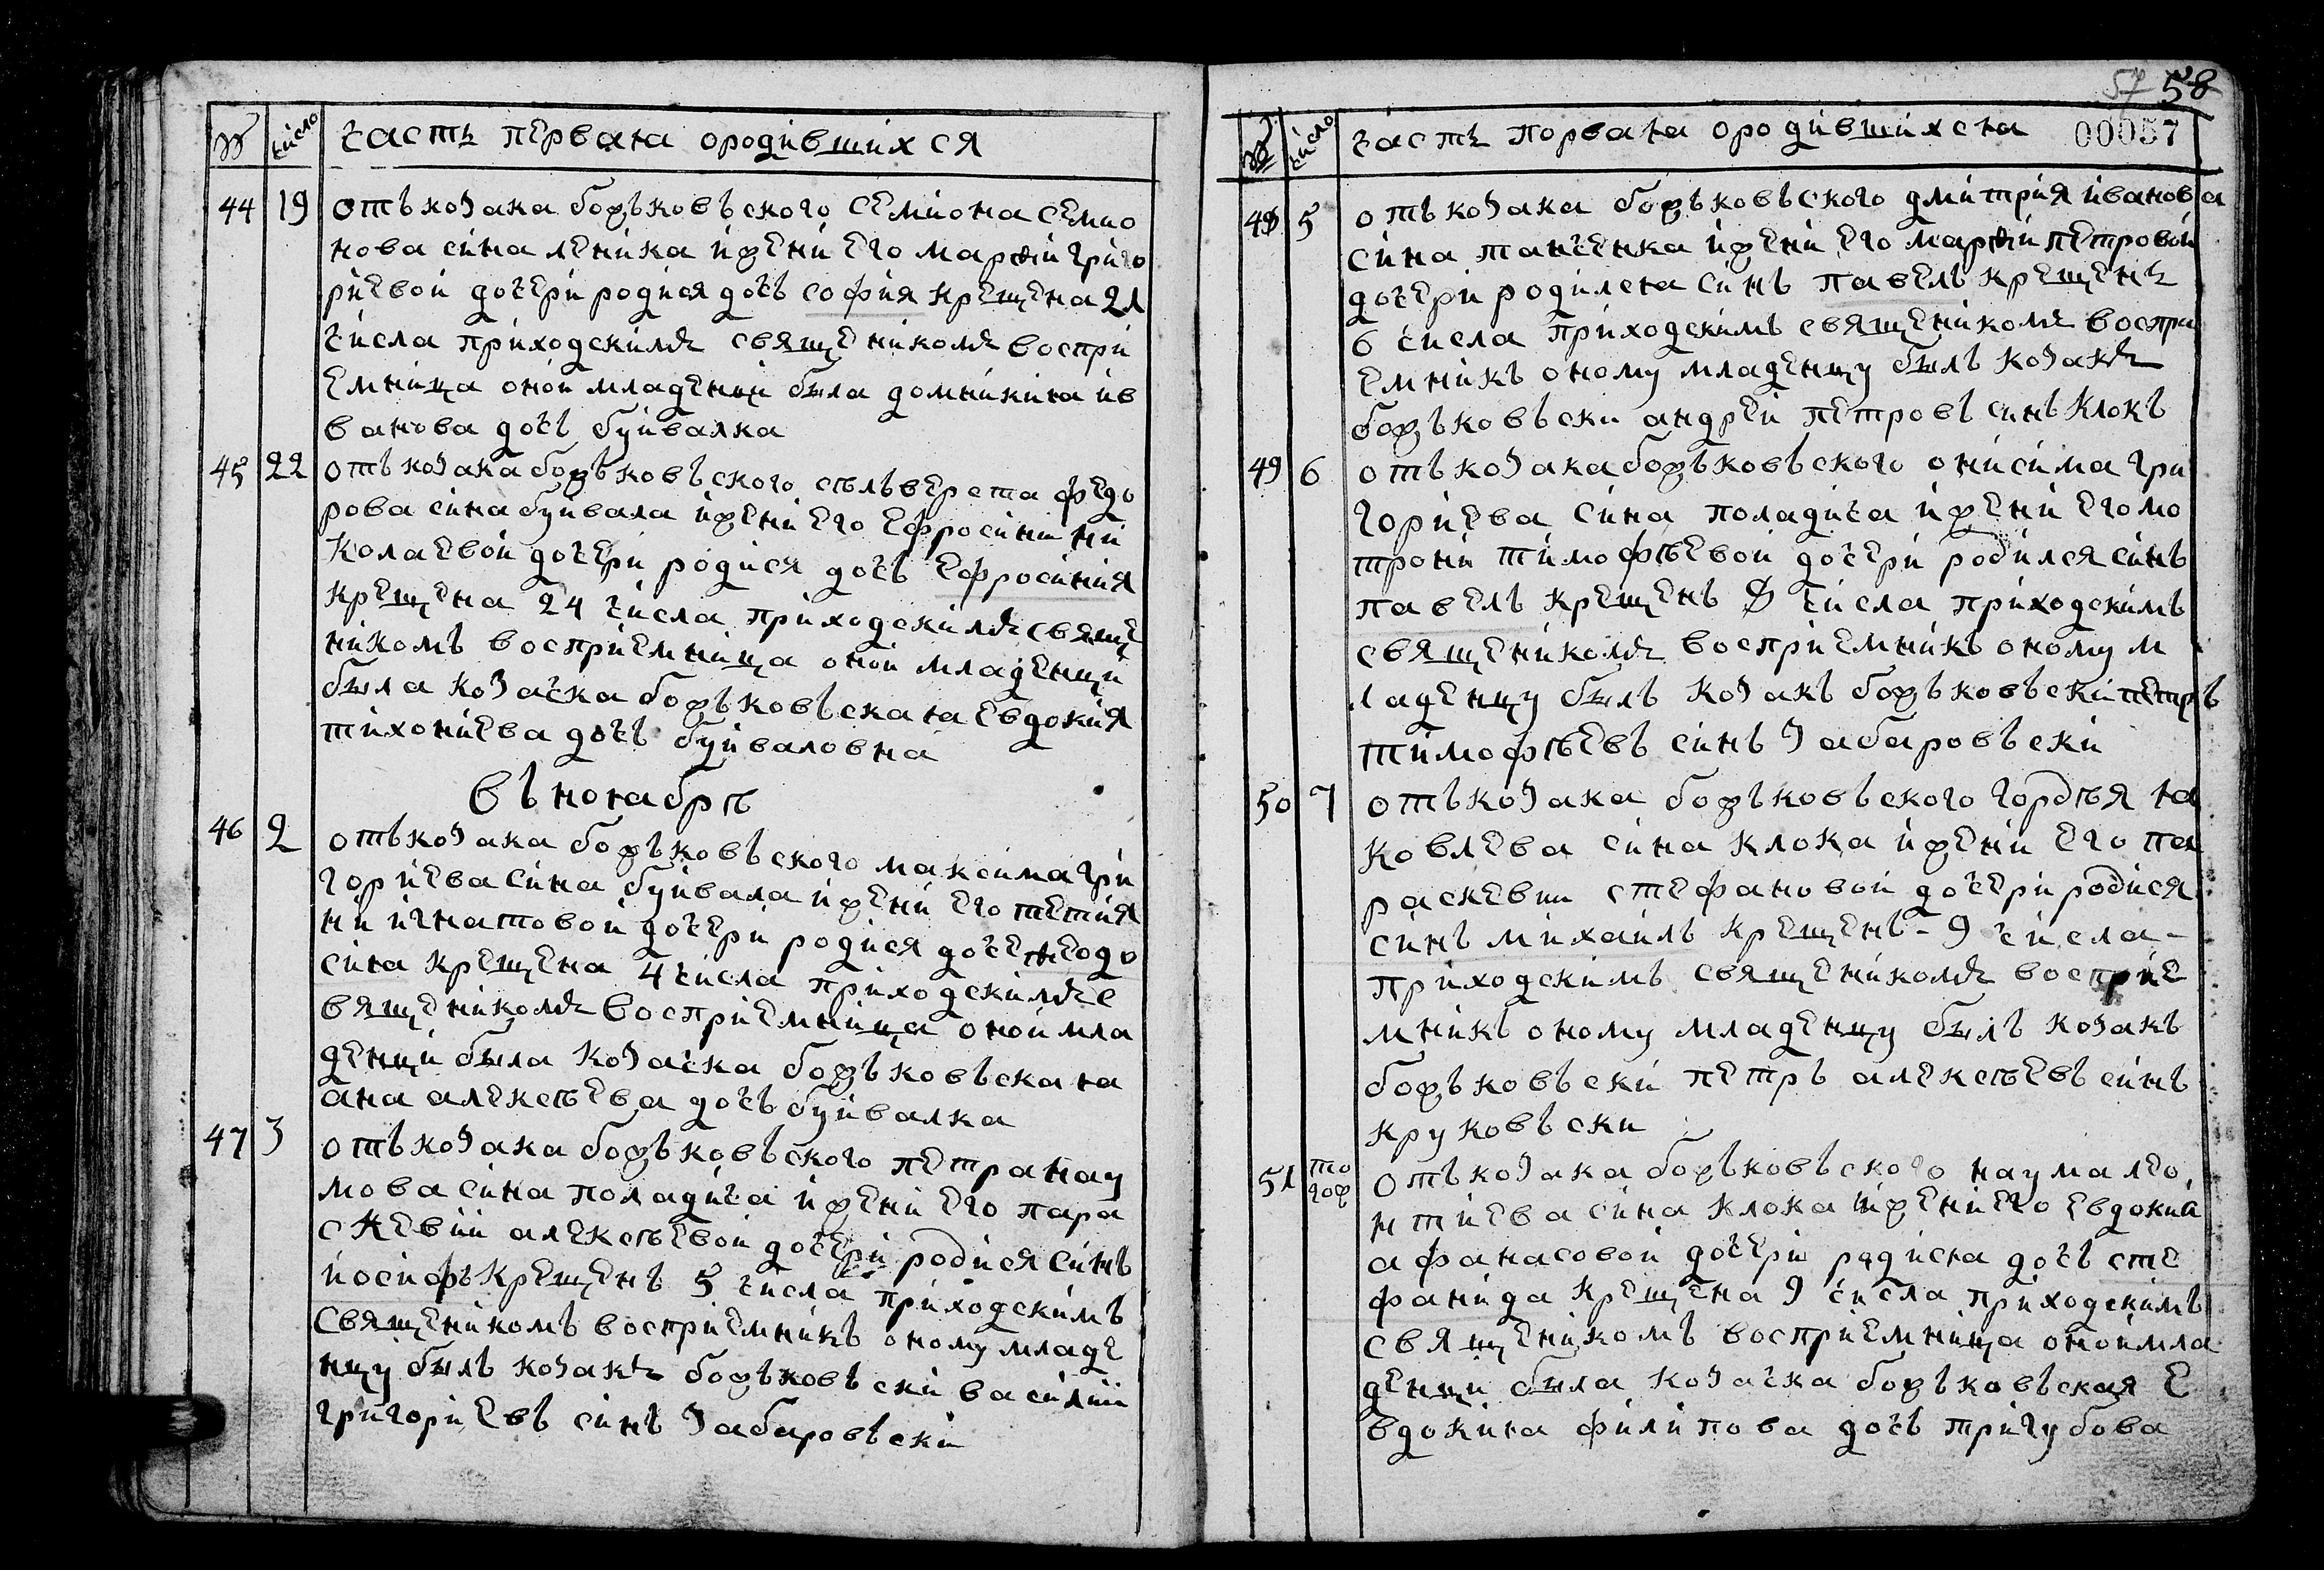 № число часть первая ородившихся
44 19 отъ козака божъковъского семиона семио
нова сина леника и жени его марфи григо
риевой дочери родися дочь софия крещена 21
числа приходскимъ священикомъ воспри
емница оной младенци была домникия ив
ванова дочь буйвалка
45 22 отъ козака божъковъского сѣльвереста федо
рова сина буйвала и жени его ефросинии ни
колаевой дочери родися дочь ефросиния
крещена 24 числа приходскимъ свяще
никомъ восприемница оной младенци
была козачка божъковъская евдокия
тихониева дочь буйваловна
въ ноябрѣ
46 2 отъ козака божъковъского максима гри
гориева сина буйвала и жени его тетия
ни игнатовой дочери родися дочь феодо
сия крещена 4 числа приходскимъ с
вященикомъ восприемница оной мла
денци была козачка божъковъская
ана алексѣева дочь буйвалка
47 3 отъ козака божъковъского петра нау
мова сина поладича и жени его пара
скевии алексѣевой дочери родися синъ
иосифъ крещенъ 5 числа приходскимъ
священикомъ восприемникъ оному младе
нцу былъ козакъ божъковъски василии
григориевъ синъ забаровъски
57 58
№ число часть порвая ородившихся 00057
48 5 отъ козака божъковъского дмитрия иванова
сина танченка и жени его марфи петровой
дочери родился синъ павелъ крещенъ
6 числа приходскимъ священикомъ воспри
емникъ оному младенцу былъ козакъ
божъковъски андрей петровъ синъ клокъ
49 6 отъ козака божъковъского онисима гри
гориева сина поладича и жени его мо
трони тимофѣевой дочери родился синъ
павелъ крещенъ 8 числа приходскимъ
священикомъ восприемникъ оному м
ладенцу былъ козакъ божъковъски петръ
тимофѣевъ синъ забаровъски
50 7 отъ козака божъковъского гордѣя я
ковлева сина клока и жени его па
раскевии стефановой дочери родися
синъ михаилъ крещенъ - 9 числа -
приходскимъ священикомъ восприе
мникъ оному младенцу былъ козакъ
божъковъски петръ алексѣевъ синъ
круковъски
51 то гож отъ козака божъковъского наума лео
нтиева сина клока и жени его евдокии
афанасовой дочери родися дочь сте
фанида крещена 9 числа приходскимъ
священикомъ восприемница оной мла
денци была козачка божъковъская е
вдокия филипова дочь тригубова